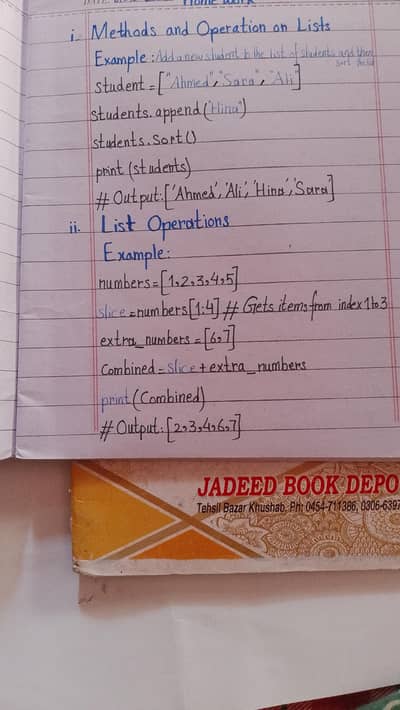 Home Work
i. Methods and Operation on Lists
Example: Add a new student to the list of students and then
sort the list
student = ["Ahmed", "Sara", "Ali"]
students.append("Hina")
students.sort()
print (students)
# Output: ['Ahmed', 'Ali', 'Hina', 'Sara']
ii. List Operations
Example:
numbers = [1,2,3,4,5]
slice = numbers[1:4] # Gets items from index 1 to 3
extra_numbers = [6,7]
Combined = slice + extra_numbers
print (Combined)
# Output: [2,3,4,6,7]
JADEED BOOK DEPO
Tehsil Bazar Khushab. Ph: 0454-711386, 0306-6397